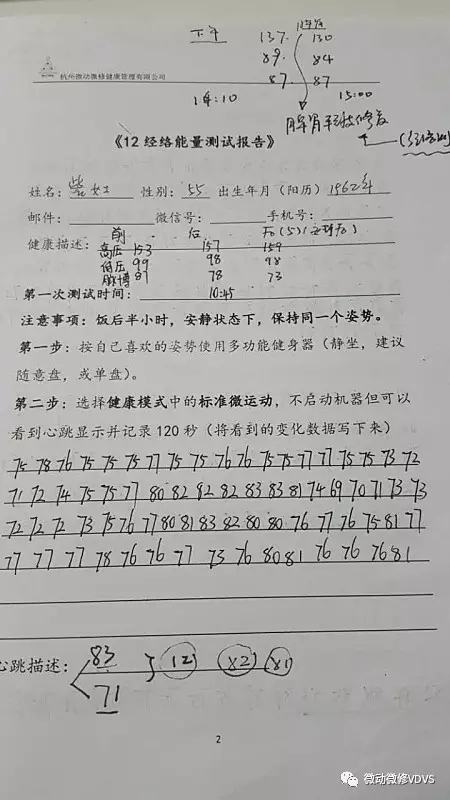 下午 137 130
89 84
87 87
杭州微动微修健康管理有限公司
14:10 15:00
《12 经络能量测试报告》
姓名: 性别: 55 出生年月（阳历）1962年
邮件: 微信号: 手机号:
前 后
健康描述: 高压 153 157 159
低压 99 98 98
脉搏 81 78 73
第一次测试时间: 10:45
注意事项：饭后半小时，安静状态下，保持同一个姿势。
第一步：按自己喜欢的姿势使用多功能健身器（静坐，建议
随意盘，或单盘）。
第二步：选择健康模式中的标准微运动，不启动机器但可以
看到心跳显示并记录 120 秒（将看到的变化数据写下来）
75 78 76 75 75 75 77 75 75 76 76 75 75 77 77 75 75 73 72
71 72 74 75 75 77 80 82 82 82 83 83 81 74 69 70 71 73 73
72 72 72 73 75 76 77 80 81 83 82 80 80 76 77 76 75 81 77
77 77 77 78 76 76 77 73 76 80 81 76 76 76 81
心跳描述: 83 12 82 81
71
2
微动微修VDVS